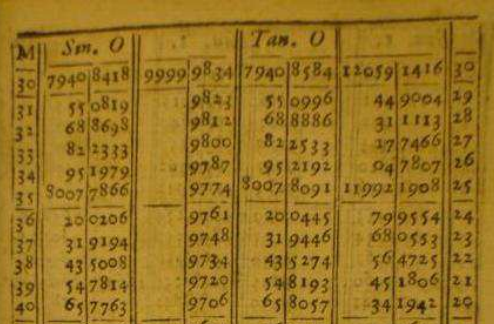 M Sin. O Tan. O
30 7940 8418 9999 9834 7940 8584 12059 1416 30
31 55 0819 9823 55 0996 44 9004 29
32 68 8698 9812 68 8886 31 1113 28
33 82 2333 9800 82 2533 17 7466 27
34 95 1979 9787 95 2192 04 7807 26
35 8007 7866 9774 8007 8091 11992 1908 25
36 20 0206 9761 20 0445 79 9554 24
37 31 9194 9748 31 9446 68 0553 23
38 43 5008 9734 43 5274 56 4725 22
39 54 7814 9720 54 8193 45 1806 21
40 65 7763 9706 65 8057 34 1942 20